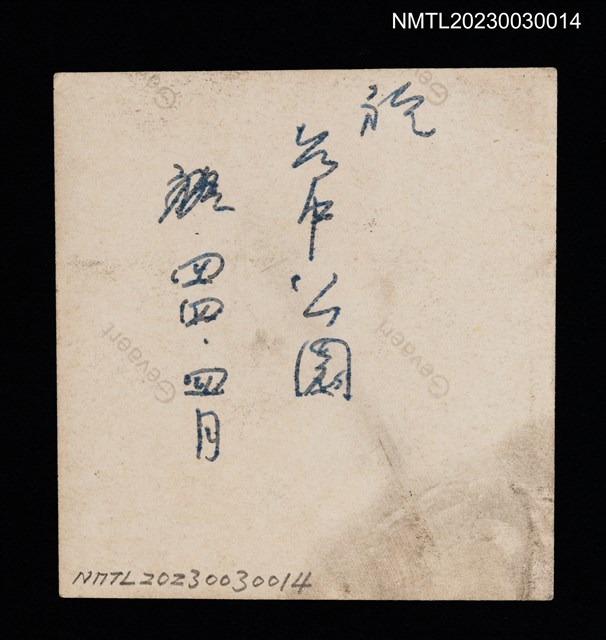 NMTL20230030014
於
台中公園
四四.四月
Gevaert
Gevaert
Gevaert
Gevaert
NMTL20230030014